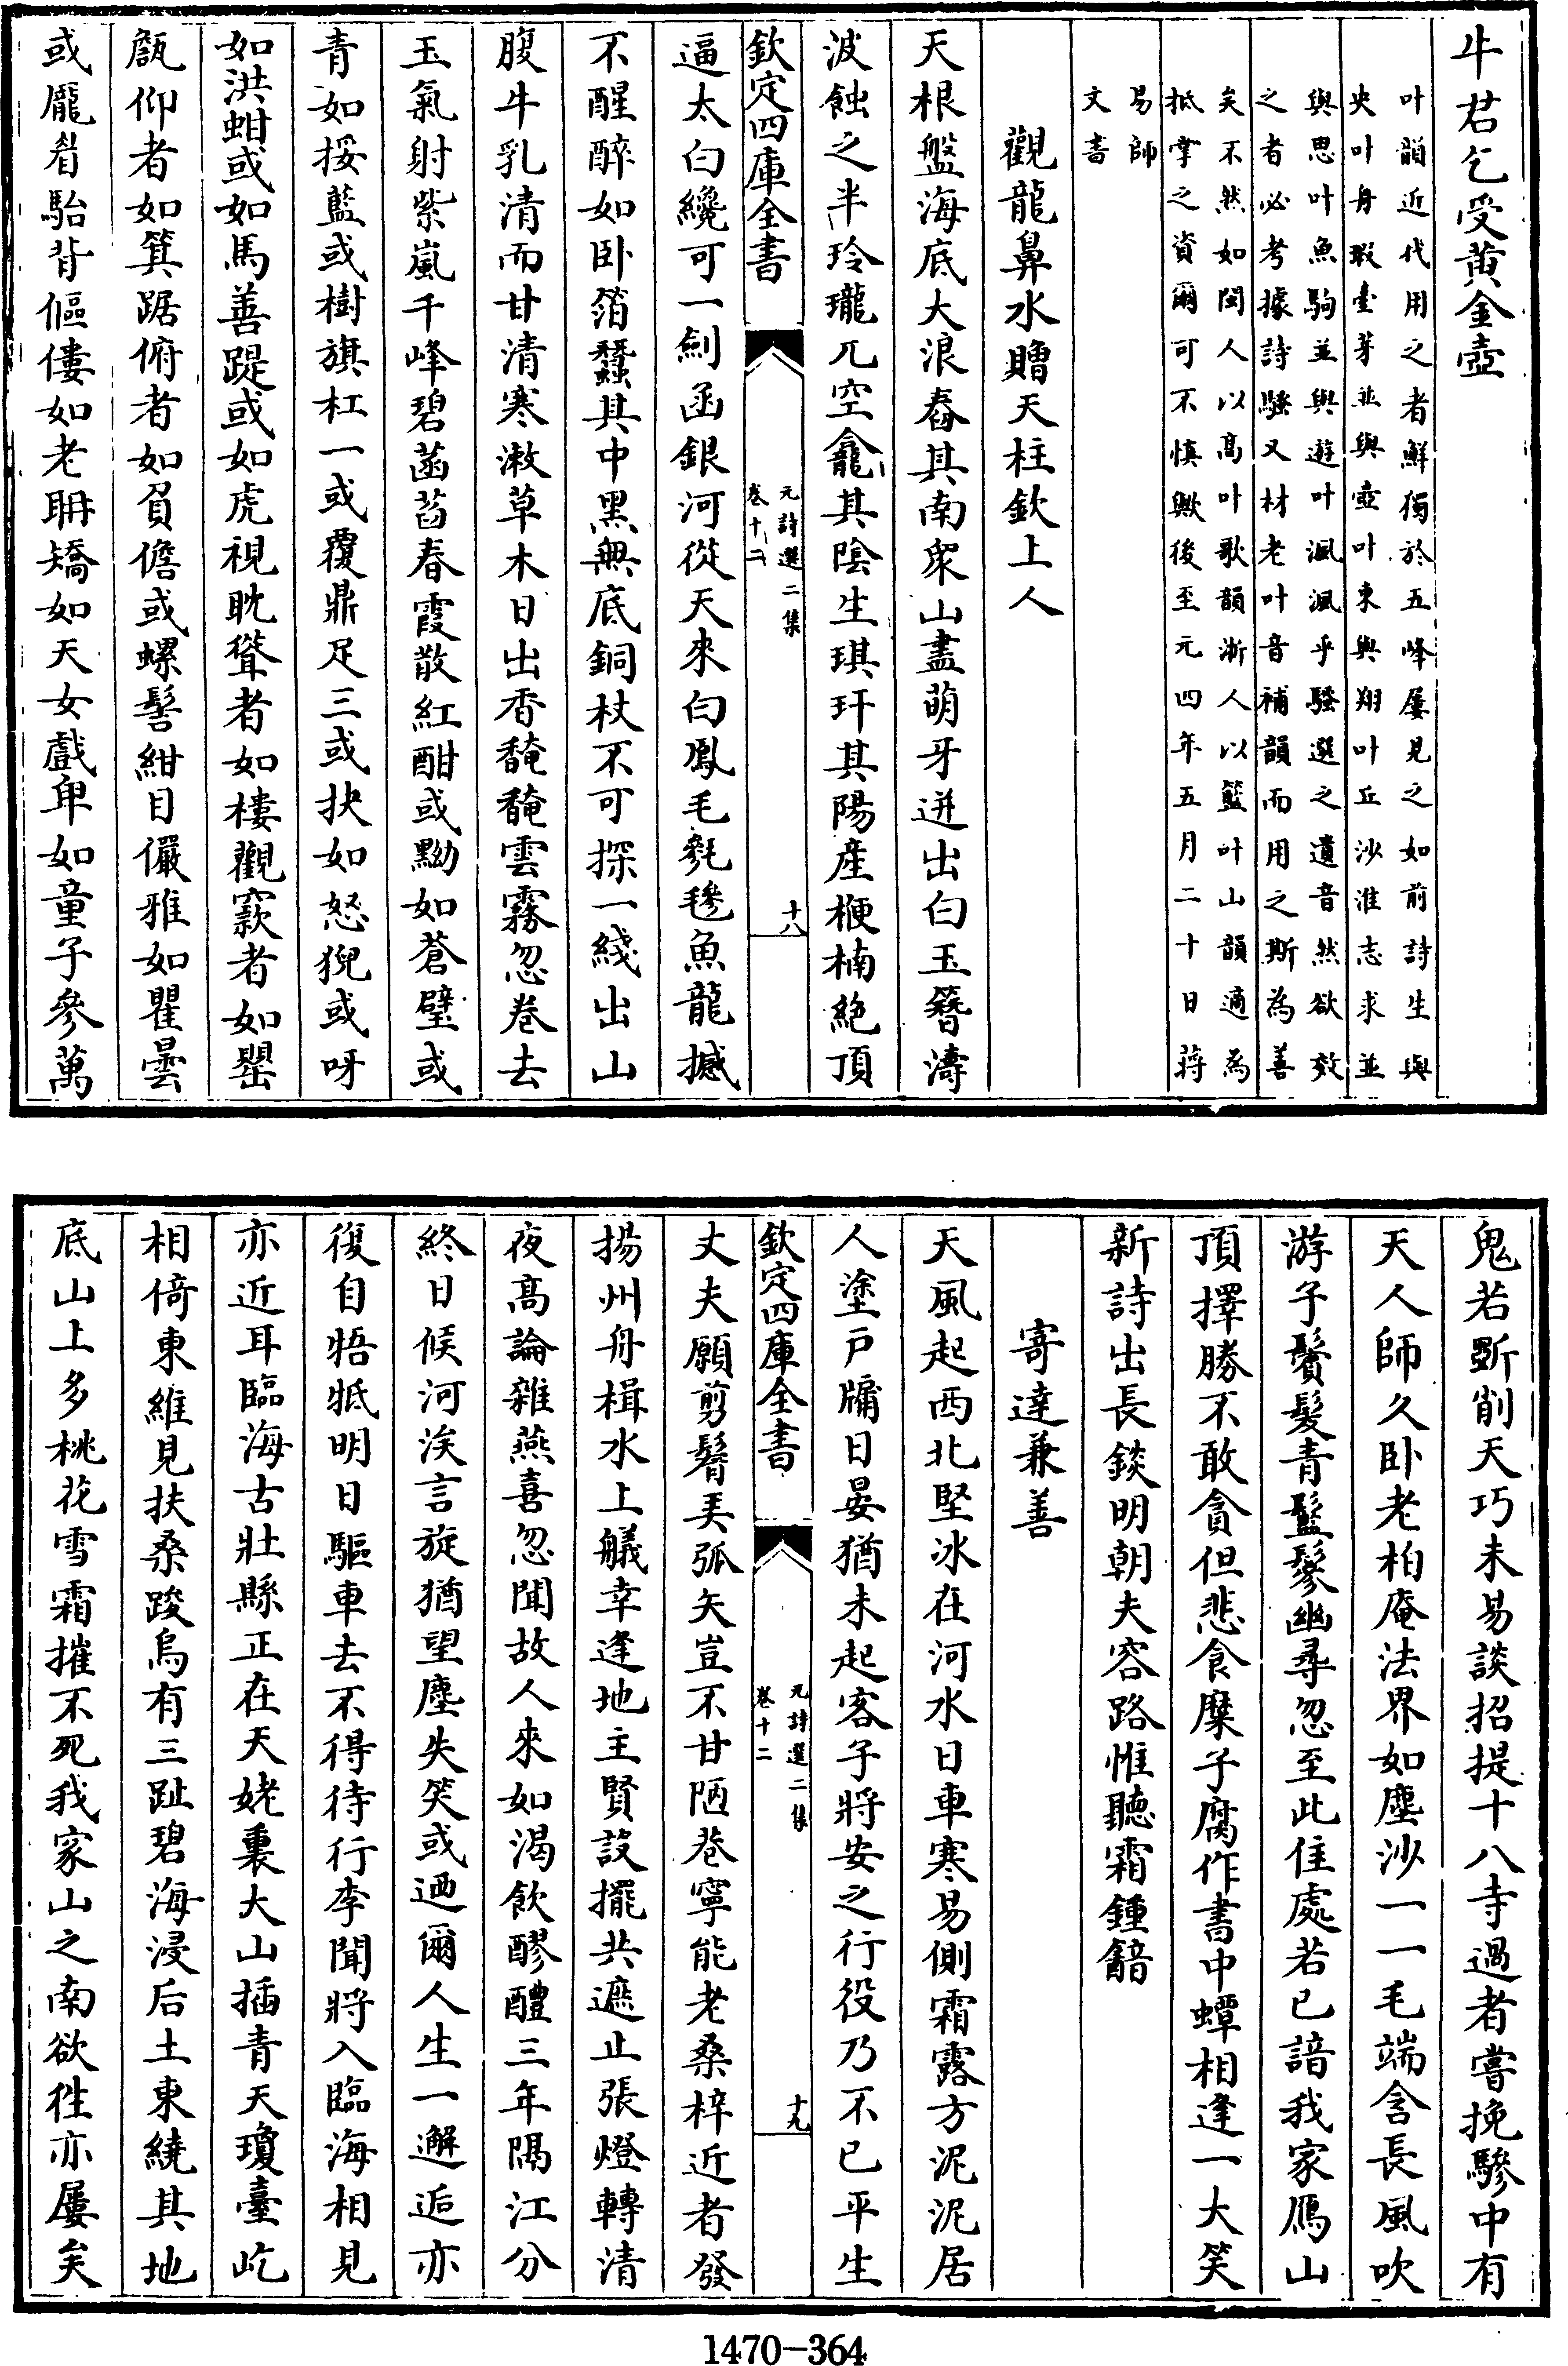 牛君乞受黄金壺
叶韻近代用之者鮮獨於五峰屢見之如前詩生與
央叶舟瑕臺芽並與壺叶東與翔叶丘沙淮志求並
與思叶魚駒並與遊叶渢渢乎騷選之遺音然欲效
之者必考據詩騷又材老叶音補韻而用之斯為善
矣不然如閩人以高叶歌韻浙人以籃叶山韻適為
抵掌之資爾可不慎歟後至元四年五月二十日蔣
易師
文書
觀龍鼻水贈天柱欽上人
天根盤海底大浪舂其南衆山盡萌牙迸出白玉簪濤
波蝕之半玲瓏兀空龕其陰生琪玕其陽産楩楠絶頂
欽定四庫全書
元詩選二集
卷十二
十八
逼太白纔可一劍函銀河從天來白鳳毛毿毿魚龍撼
不醒醉如卧箔蠶其中黑無底銅杖不可探一綫出山
腹牛乳清而甘清寒漱草木日出香馣馣雲霧忽卷去
玉氣射紫嵐千峰碧菡萏春霞散紅酣或黝如蒼璧或
青如挼藍或樹旗杠一或覆鼎足三或抉如怒猊或呀
如洪蚶或如馬善踶或如虎視眈聳者如樓觀窾者如罌
甔仰者如箕踞俯者如負儋或螺髻紺目儼雅如瞿曇
或龎眉駘背傴僂如老聃矯如天女戲卑如童子參萬
鬼若斲削天巧未易談招提十八寺遇者嘗挽驂中有
天人師久卧老柏庵法界如塵沙一一毛端含長風吹
游子鬢髮青鬛鬖幽尋忽至此住處若已諳我家鴈山
頂擇勝不敢貪但悲食糜子腐作書中蟫相逢一大笑
新詩出長錟明朝夫容路惟聽霜鍾韽
寄達兼善
天風起西北堅冰在河水日車寒易側霜露方泥泥居
人塗戸牖日晏猶未起客子將安之行役乃不已平生
欽定四庫全書
元詩選二集
卷十二
十九
丈夫願剪鬋美弧矢豈不甘陋巷寧能老桑梓近者發
揚州舟楫水上艤幸逢地主賢設擺共遮止張燈轉清
夜高論雜燕喜忽聞故人來如渴飲醪醴三年隅江分
終日候河涘言旋猶望塵失笑或迺爾人生一邂逅亦
復自牾牴明日驅車去不得待行李聞將入臨海相見
亦近耳臨海古壯縣正在天姥裏大山插青天瓊臺屹
相倚東維見扶桑踆烏有三趾碧海浸后土東繞其地
底山上多桃花雪霜摧不死我家山之南欲徃亦屢矣
1470-364